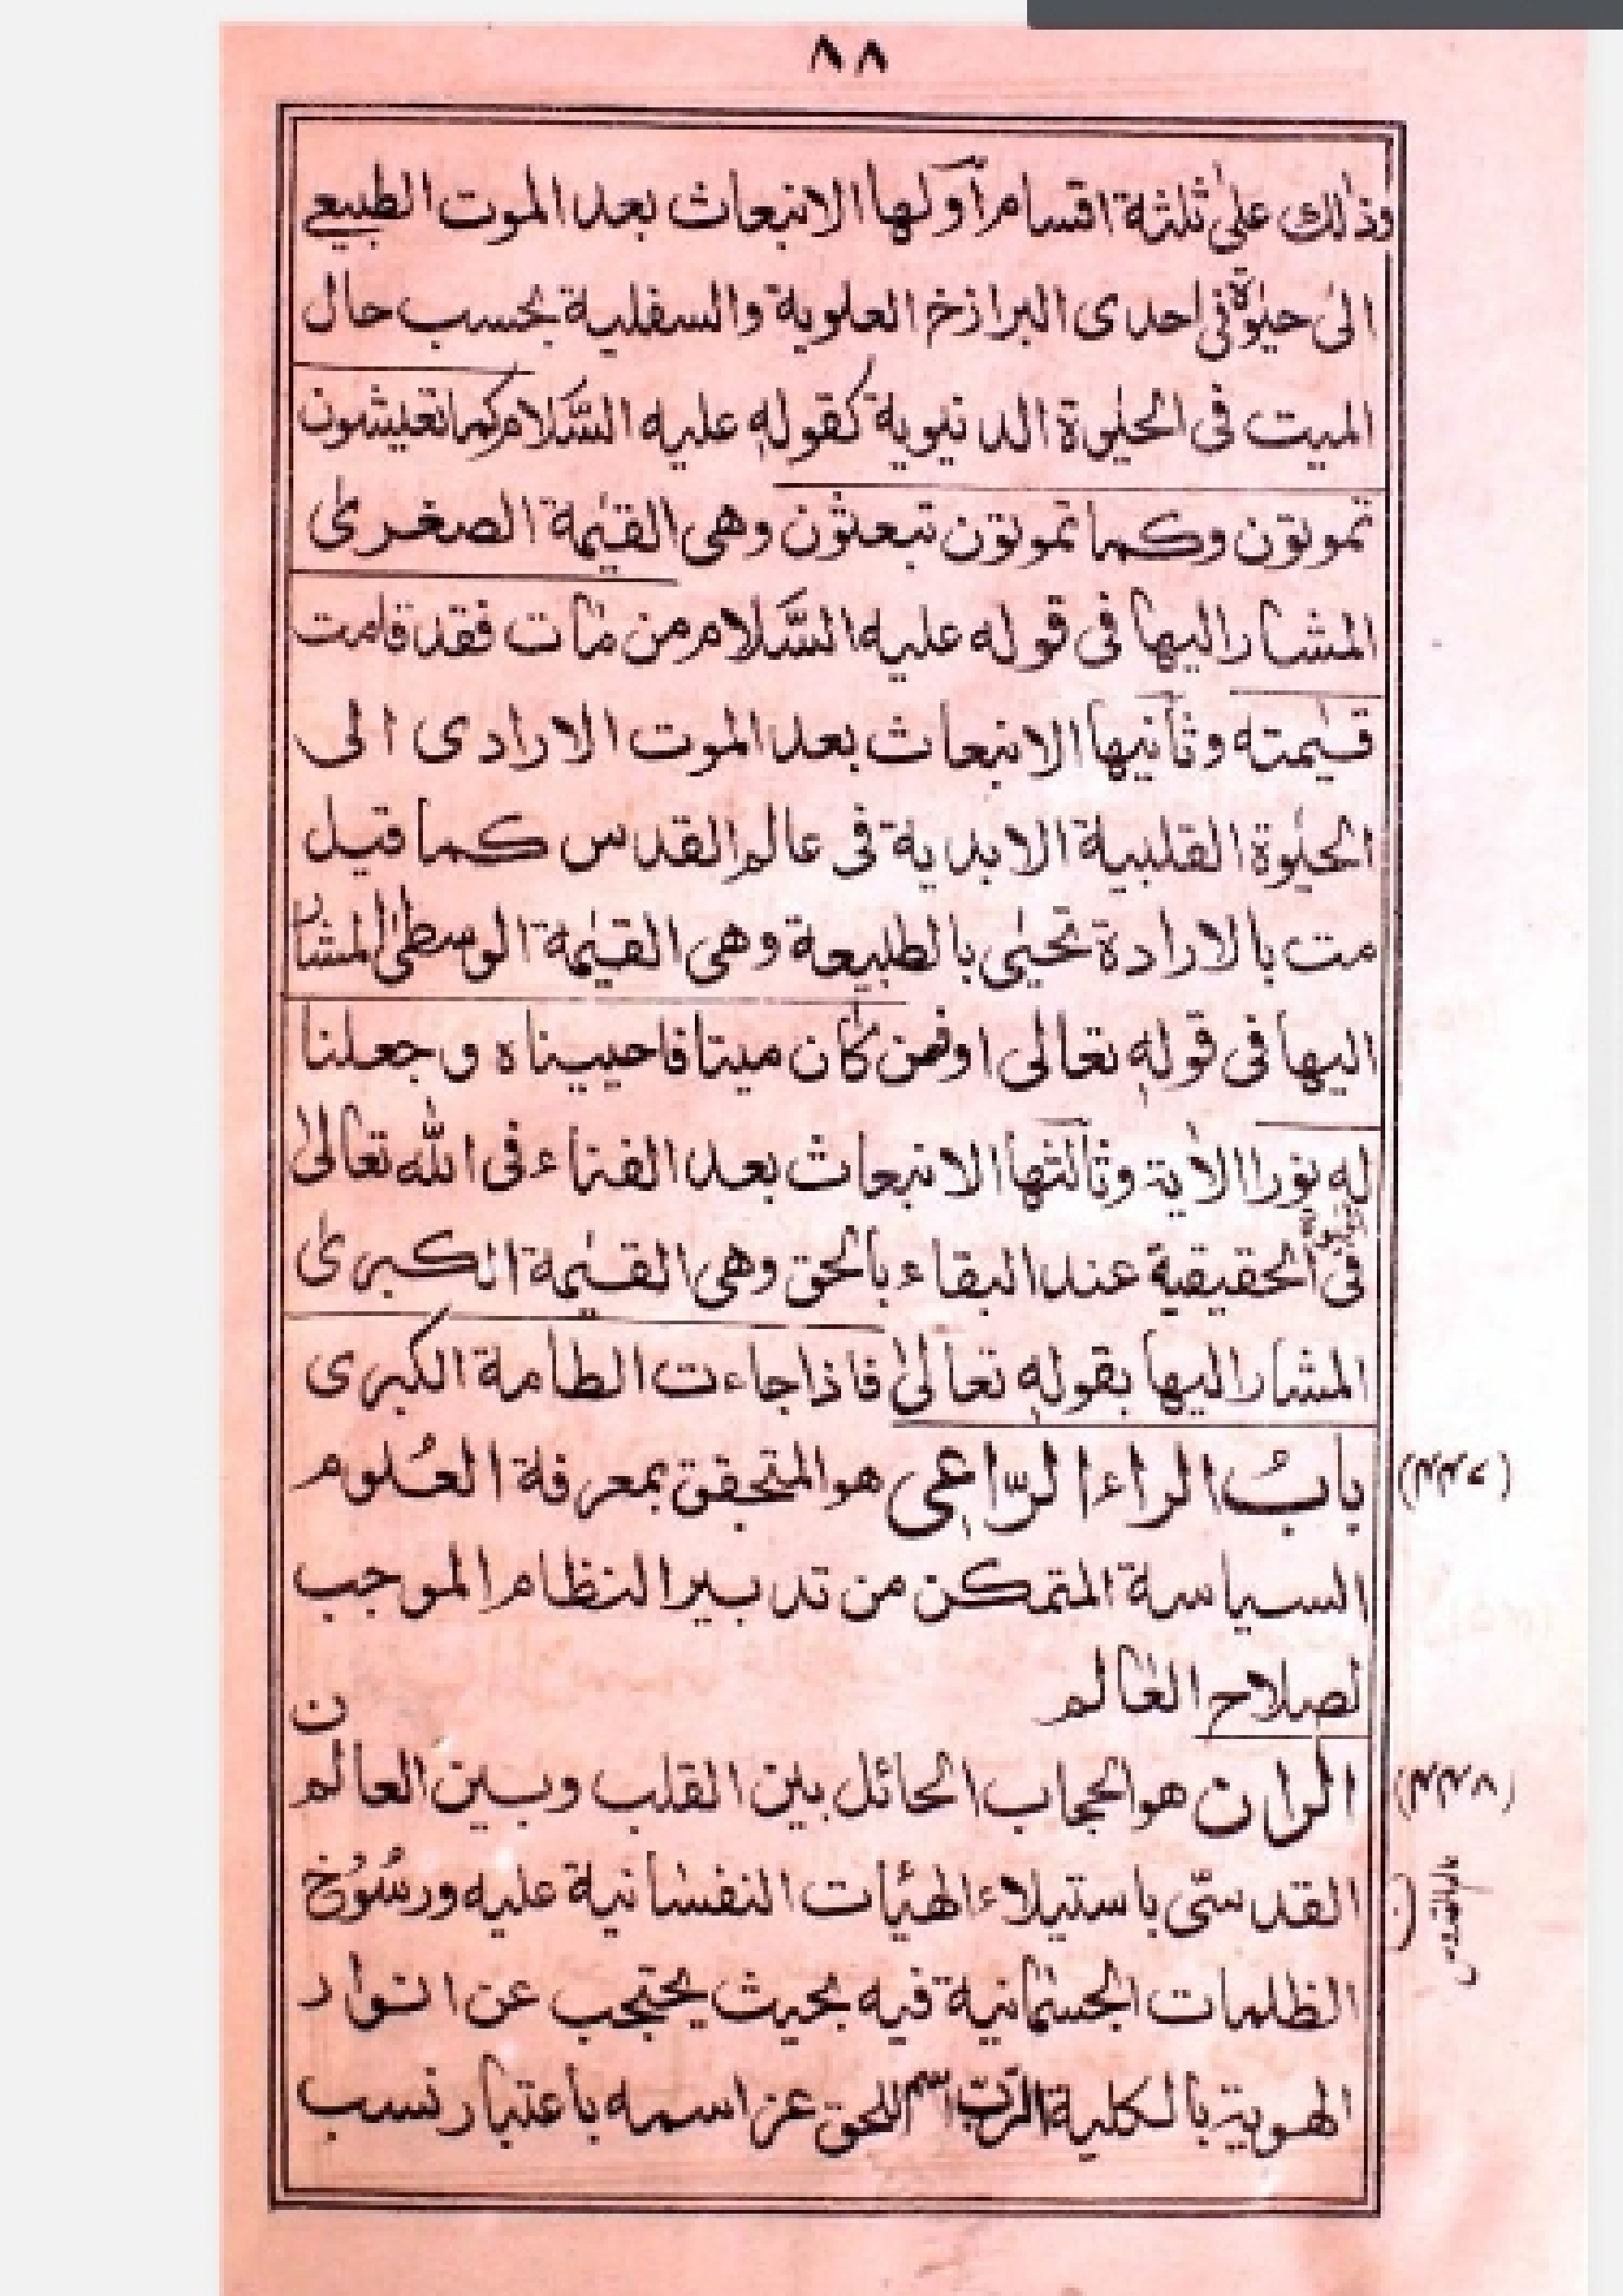 ٨٨
وذٰلك علىٰ ثلثة اقسام اوّلها الانبعاث بعد الموت الطبيعے
الىٰ حيٰوة فى احدى البرازخ العلوية والسفلية بحسب حال
الميت فى الحيٰوة الدنيوية كقولهٖ عليه السَّلام كما تعيشون
تموتون وكما تموتون تبعثون وهى القيٰمة الصغرىٰ
المشار اليها فى قوله عليه السَّلام من مات فقد قامت
قيٰمته وثانيها الانبعاث بعد الموت الارادى الى
الحيٰوة القلبية الابدية فى عالم القدس كما قيل
مت بالارادة تحيىٰ بالطبيعة وهى القيٰمة الوسطىٰ المشار
اليها فى قولهٖ تعالى اومن كان ميتا فاحييناه وجعلنا
له نورا الاية وثالثها الانبعاث بعد الفناء فى الله تعالىٰ
فى الحقيقية عند البقاء بالحق وهى القيٰمة الكبرىٰ
المشار اليها بقولهٖ تعالىٰ فاذا جاءت الطامة الكبرى
بابُ الراء الرّاعى هو المتحقق بمعرفة العُلوم
السياسة المتمكن من تدبير النظام الموجب
لصلاح العالم
ن
الران هو الحجاب الحائل بين القلب وبين العالم
القدسّى باستيلاء الهئات النفسانية عليه ورسُوُخ
الظلمات الجسمانية فيه بحيث يحتجب عن انوار
الهوية بالكلية الربّ اسم للحق عز اسمه باعتبار نسب